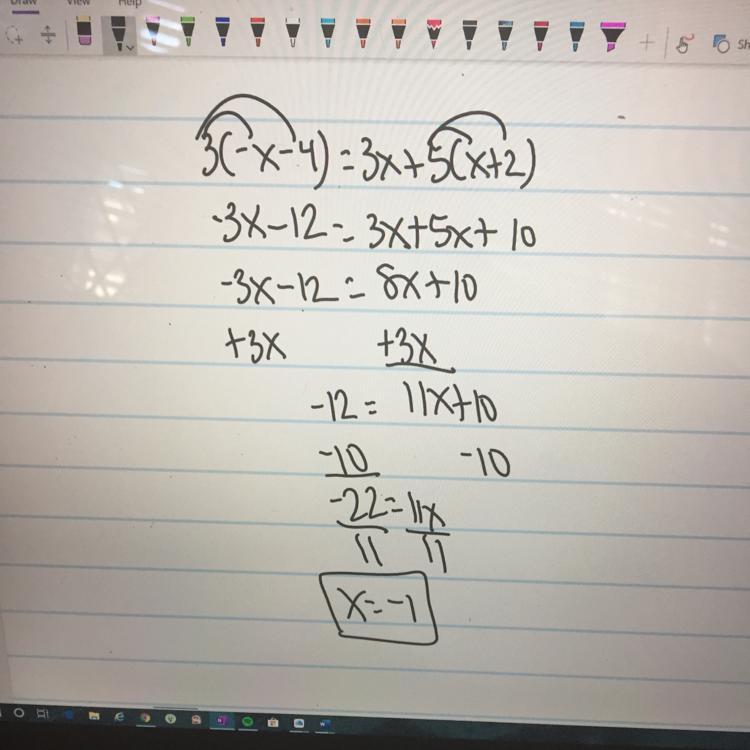 Draw View Help
Sh
3(-x-4)=3x+5(x+2)
-3x-12=3x+5x+10
-3x-12=8x+10
+3x +3x
-12= 11x+10
-10 -10
-22=11x
11 11
x=-1